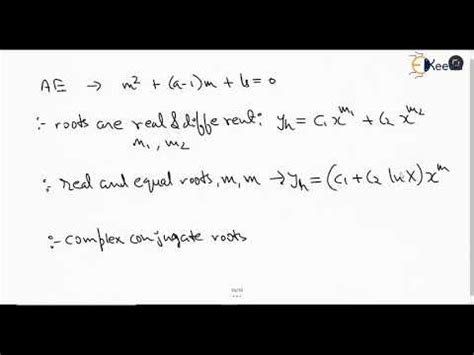 Keeda
AE → m² + (a-1)m + b = 0
:- roots are real & different: y_h = c₁x^m₁ + c₂x^m₂
m₁, m₂
:- real and equal roots, m, m → y_h = (c₁ + c₂ ln x) x^m
:- complex conjugate roots